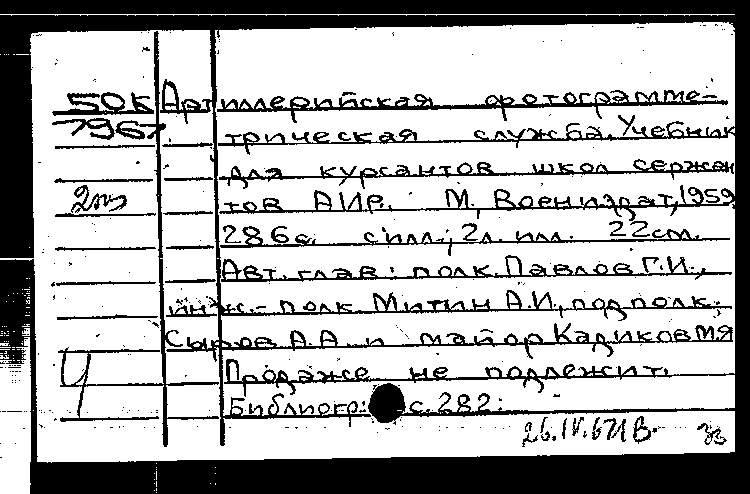 50К Артиллерийская фотограмме-
7967 трическая служба. Учебник
для курсантов школ сержан
2 тов АИР. М, Воениздат, 1959
286с. с илл.; 2л. илл. 22см.
Авт. глав: полк. Павлов Г.И.,
инж.-полк. Митин А.И., подполк.
Сыров А.А и майор Кадиков МЯ
Продаже не подлежит.
Ч Библиогр: с. 282.
26.IV.67